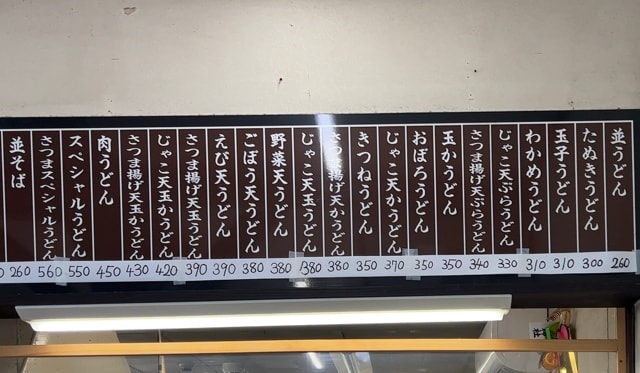 並うどん 260
たぬきうどん 300
玉子うどん 310
わかめうどん 310
じゃこ天ぷらうどん 330
さつま揚げ天ぷらうどん 340
玉かうどん 350
おぼろうどん 350
じゃこ天かうどん 370
きつねうどん 350
さつま揚げ天かうどん 380
じゃこ天玉うどん 380
野菜天うどん 380
ごぼう天うどん 380
えび天うどん 390
さつま揚げ天玉うどん 390
じゃこ天玉かうどん 420
さつま揚げ天玉かうどん 430
肉うどん 450
スペシャルうどん 550
さつまスペシャルうどん 560
並そば 260